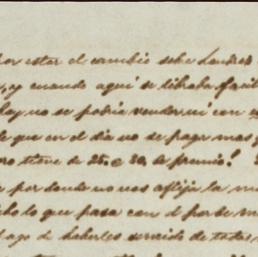 por estar el cambio sobre Londres
, y cuando aquí se libraba facil
hoy no se podria vender ni con
de que en el dia no se paga mas
oro tiene de 25. a 30. de premio!
por donde no nos aflija la
lo que pasa con el
de haberles servido de todas